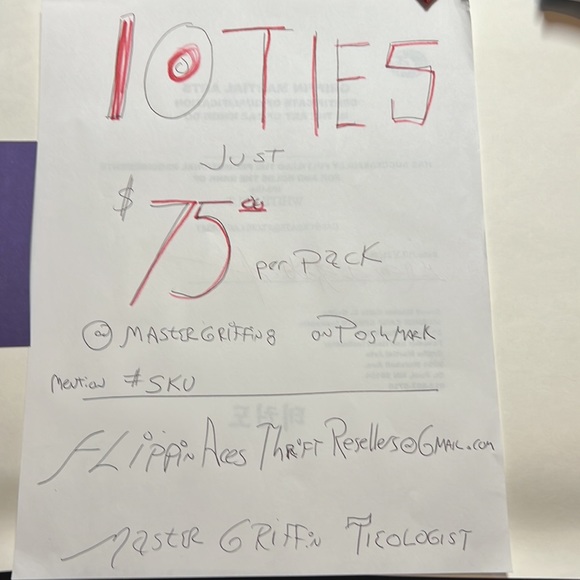 10 TIES
JUST
$75.00
per PACK
@ MASTERGRIFFIN8 ON POSHMARK
Mention #SKU
FLippiN Aces ThRiFT Resellers@GMAIL.com
MASTER GRiFFiN TIEOLOGIST